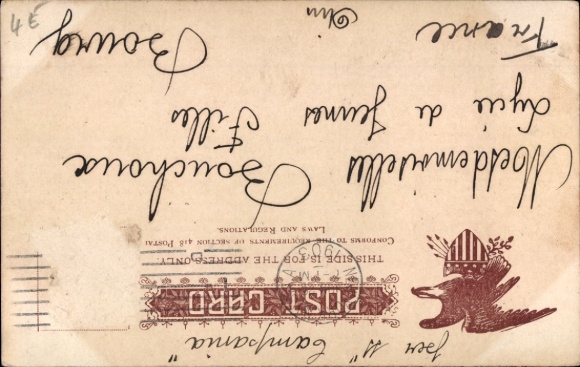 per SS "Campania"
POST CARD
THIS SIDE IS FOR THE ADDRESS ONLY.
CONFORMS TO THE REQUIREMENTS OF SECTION 418 POSTAL
LAWS AND REGULATIONS.
1903
Mesdemoiselles Bouchoux
Lycée de Jeunes Filles
Bourg
Ain
France
4E